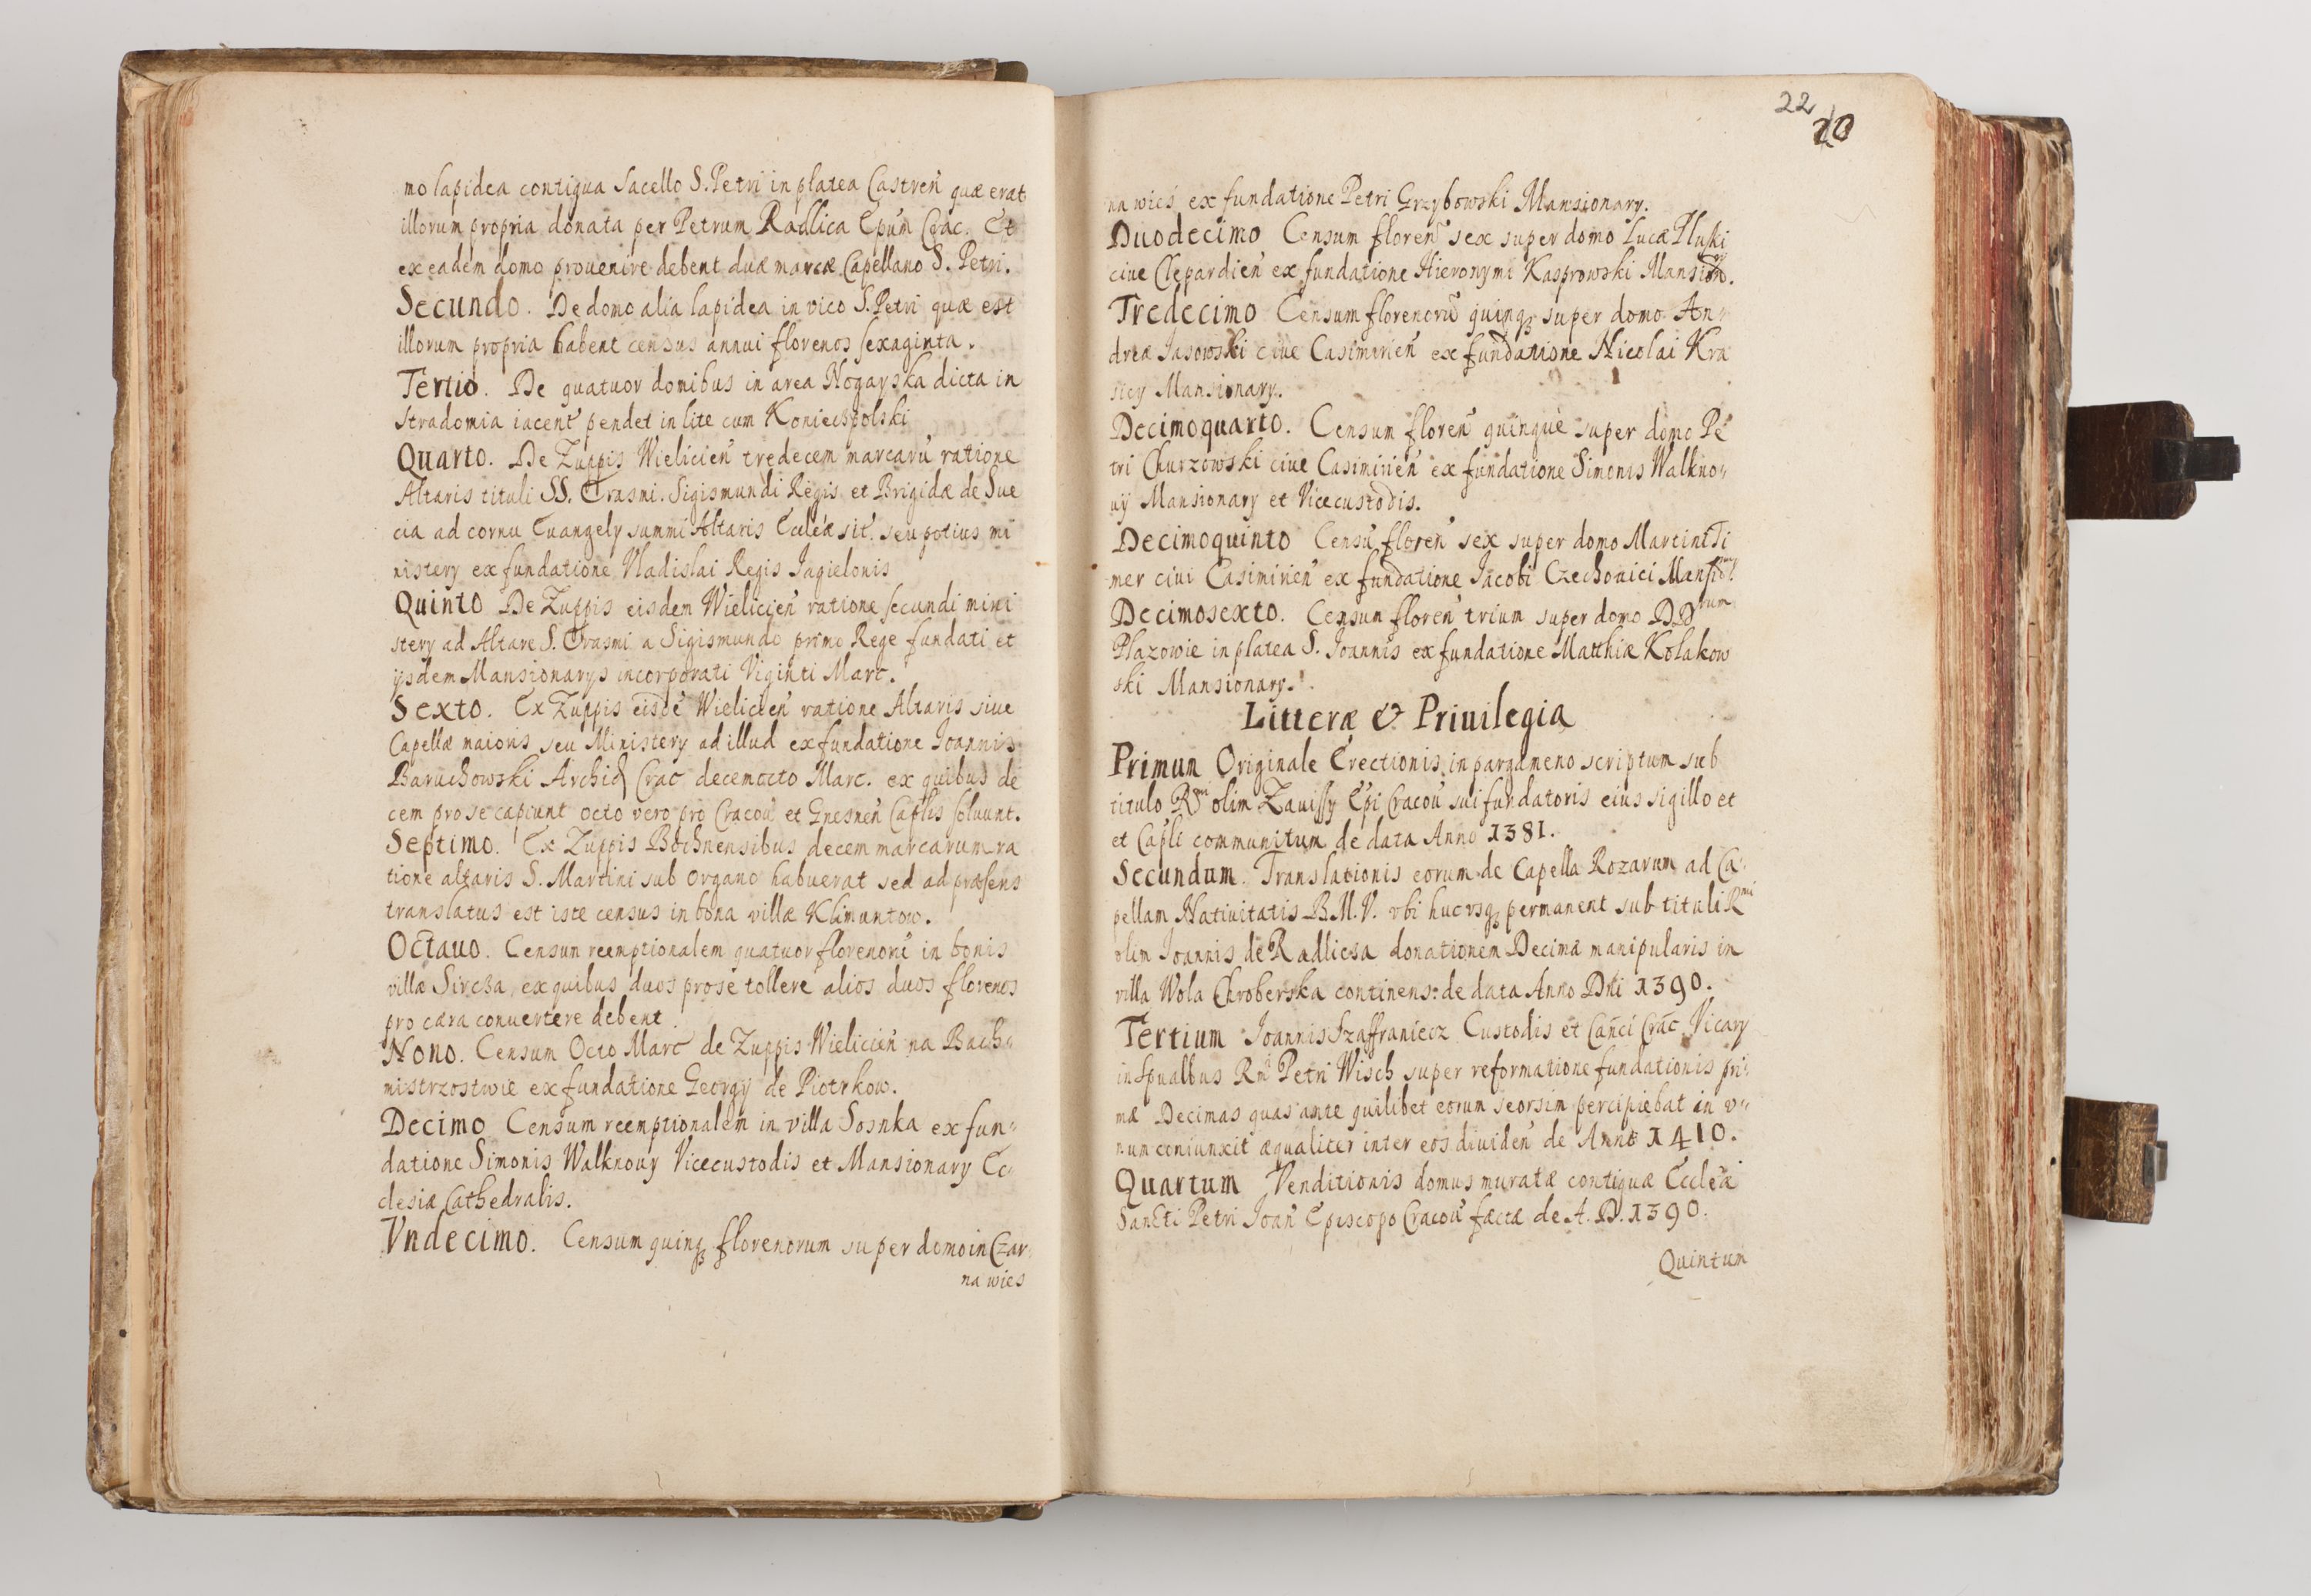 mo lapidea contigua Sacello S. Petri in platea Castreñ quæ erat
illorum propria donata per Petrum Radlica Epum Crac. Et
ex eadem domo prouenire debent duæ marcæ Capellano S. Petri.
Secundo. De domo alia lapidea in vico S. Petri quæ est
illorum propria habent census annui florenos sexaginta.
Tertio. De quatuor domibus in area Nogayska dicta in
Stradomia iacent pendet in lite cum Koniecspolski
Quarto. De Zuppis Wielicień tredecem marcarū ratione
Altaris tituli SS. Erasmi. Sigismundi Regis et Brigidæ de Sue
cia ad cornu Euangely summi Altaris Eccleæ sit. seu potius mi
nistery ex fundatione Vladislai Regis Jagielonis
Quinto De Zuppis eisdem Wielicień ratione secundi mini
stery ad Altare S. Erasmi a Sigismundo primo Rege fundati et
ijsdem Mansionarys incorporati Viginti Marc.
Sexto. Ex Zuppis eisdē Wielicień ratione Altaris siue
Capellæ maioris seu Ministery ad illud ex fundatione Joannis
Baruchowski Archid Crac decemocto Marc. ex quibus de
cem pro se capiunt octo vero pro Cracou et Gnesnen Caplis soluunt.
Septimo. Ex Zuppis Bochnensibus decem marcarum ra
tione altaris S. Martini sub organo habuerat sed ad præsens
translatus est iste census in bona villæ Klimuntow.
Octauo. Censum reemptionalem quatuor florenorū in bonis
villæ Sircza, ex quibus duos pro se tollere alios duos florenos
pro cæra conuertere debent.
Nono. Censum Octo Marc de Zuppis Wielicień na Bach
mistrzostwie ex fundatione Georgy de Piotrkow.
Decimo Censum reemptionalem in villa Sosnka ex fun
datione Simonis Walknouy Vicecustodis et Mansionary Ec
clesiæ Cathedralis.
Vndecimo. Censum quinq florenorum super domo in Czar
na wies
22
20
na wies ex fundatione Petri Grzybowski Mansionary.
Duodecimo Censum floreñ sex super domo Lucæ Pluski
ciue Clepardień ex fundatione Hieronymi Kasprowski Mansion.
Tredecimo Censum florenorū quinq super domo An
dreæ Jasowski ciue Casimirień ex fundatione Nicolai Kra
Mansionary.
Decimoquarto. Censum floreñ quinque super domo Pe
tri Churzowski ciue Casimirień ex fundatione Simonis Walkno
uy Mansionary et Vicecustodis.
Decimoquinto Censū floreñ sex super domo Martini Ti
mer ciui Casimirień ex fundatione Jacobi Czechouici
Decimosexto. Censum floreñ trium super domo DDrum
Plazowie in platea S. Joannis ex fundatione Matthiæ Kolakow
ski Mansionary.
Litteræ & Priuilegia
Primum Originale Erectionis in pargameno scriptum sub
titulo Rmi olim Zauissy Epi Cracou sui fundatoris eius sigillo et
et Capli communitum de data Anno 1381.
Secundum. Translationis eorum de Capella Rozarum ad Ca
pellam Natiuitatis B. M. V. vbi huc vsq permanent sub tituli Rmi
olim Joannis de Radlicsa donationem Decimæ manipularis in
villa Wola Chroberska continens: de data Anno Dñi 1390.
Tertium Joannis Szaffraniecz Custodis et Cañci Crac Vicary
in Spualbus Rm̃i Petri Wisch super reformatione fundationis pri
mæ Decimas quas ante quilibet eorum seorsim percipiebat in v
num coniunxit æqualiter inter eos diuideñ de Anno 1410.
Quartum Venditionis domus muratæ contiguæ Eccleæ
Sancti Petri Joañ Episcopo Cracou factæ de A. D. 1390.
Quintum